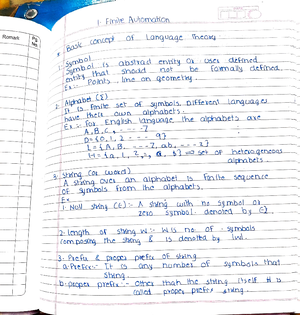 Remark
Pg
No
1. Finite Automation
* Basic concept of Language Theory
1. Symbol
Symbol is abstract entity or user defined
entity that should not be formally defined.
Ex:- Points, line on geometry.
2. Alphabet {Σ}
It is finite set of symbols. Different languages
have their own alphabets.
Ex:- For English language the alphabets are
A, B, C, ---- Z
D = {0, 1, 2 ---- 9}
= {A, B, --- Z, ab, --- z}
set of heterogeneous
alphabets
3. String (or word)
A string over an alphabet is finite sequence
of symbols from the alphabets.
Ex.
1. Null string (ε):- A string with no symbol or
zero symbol. denoted by ε}.
2. length of string w:- w is no. of symbols
composing the string & is denoted by |w|.
3. Prefix & proper prefix of string
a. Prefix:- It is any number of symbols that
string.
b. proper prefix:- Other than the string itself it is
called proper prefix string.